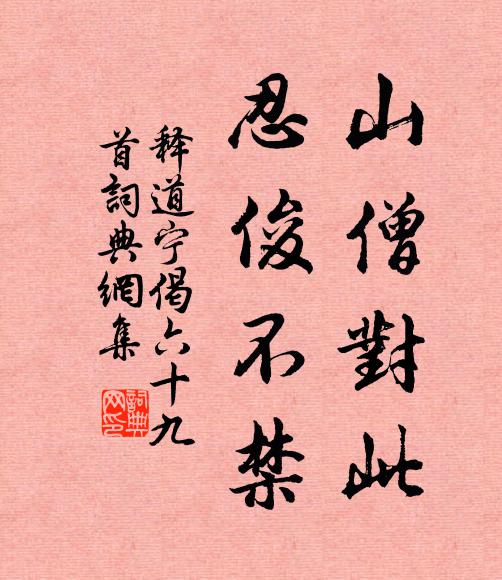 山僧對此
忍俊不禁
释道宁偈六十九
首詞典網集
詞典
网印